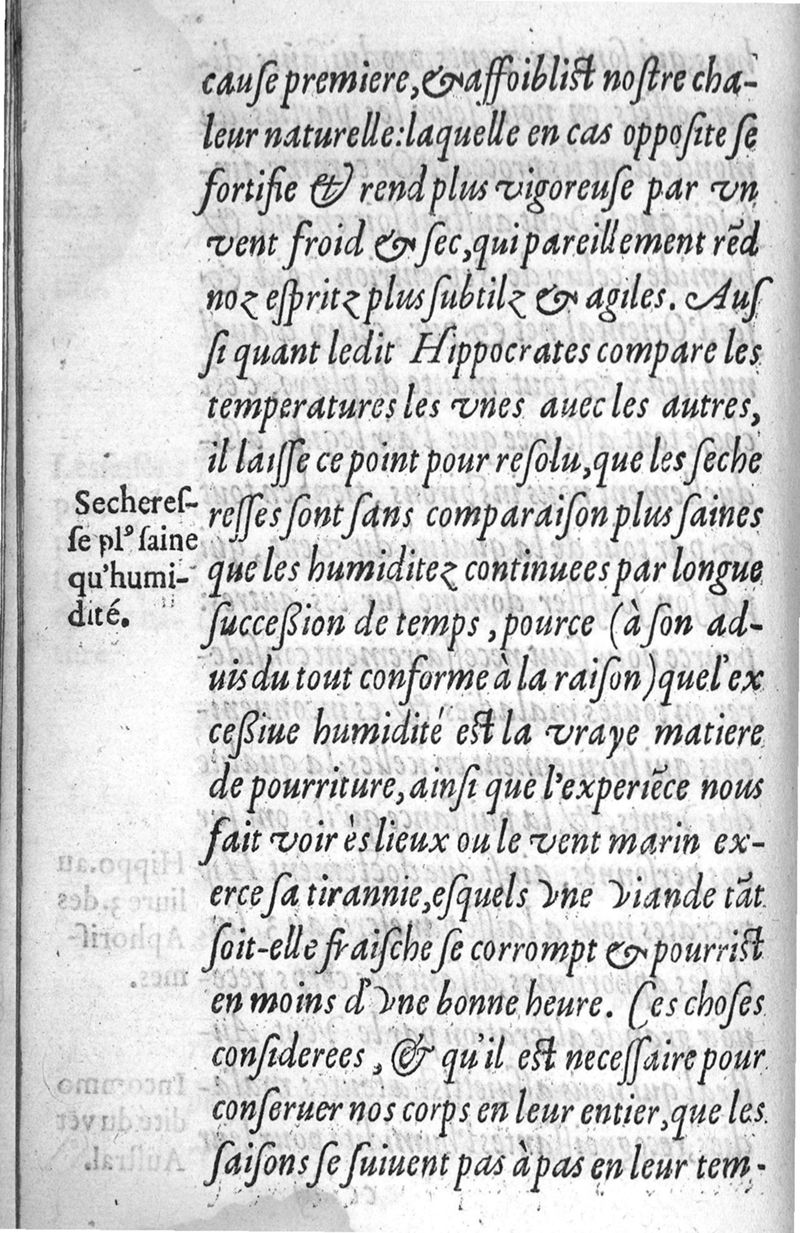 cauſe premiere, & affoibliſt noſtre cha-
leur naturelle: laquelle en cas oppoſite ſe
fortifie & rend plus vigoreuſe par vn
vent froid & ſec, qui pareillement rẽd
noz eſpritz plus ſubtilz & agiles. Auſ
ſi quant ledit Hippocrates compare les
temperatures les vnes auec les autres,
il laiſſe ce point pour reſolu, que les ſeche
reſſes ſont ſans comparaiſon plus ſaines
que les humiditez continuees par longue
ſucceßion de temps, pource (à ſon ad-
uis du tout conforme à la raiſon) que l'ex
ceßiue humidité eſt la vraye matiere
de pourriture, ainſi que l'experiẽce nous
fait voir ès lieux ou le vent marin ex-
erce ſa tirannie, eſquels vne viande tãt
ſoit-elle fraiſche ſe corrompt & pourriſt
en moins d'vne bonne heure. Ces choſes
conſiderees, & qu'il eſt neceſſaire pour
conſeruer nos corps en leur entier, que les
ſaiſons ſe ſuiuent pas à pas en leur tem-
Sechereſ-
ſe plꝰ ſaine
qu'humi-
dité.